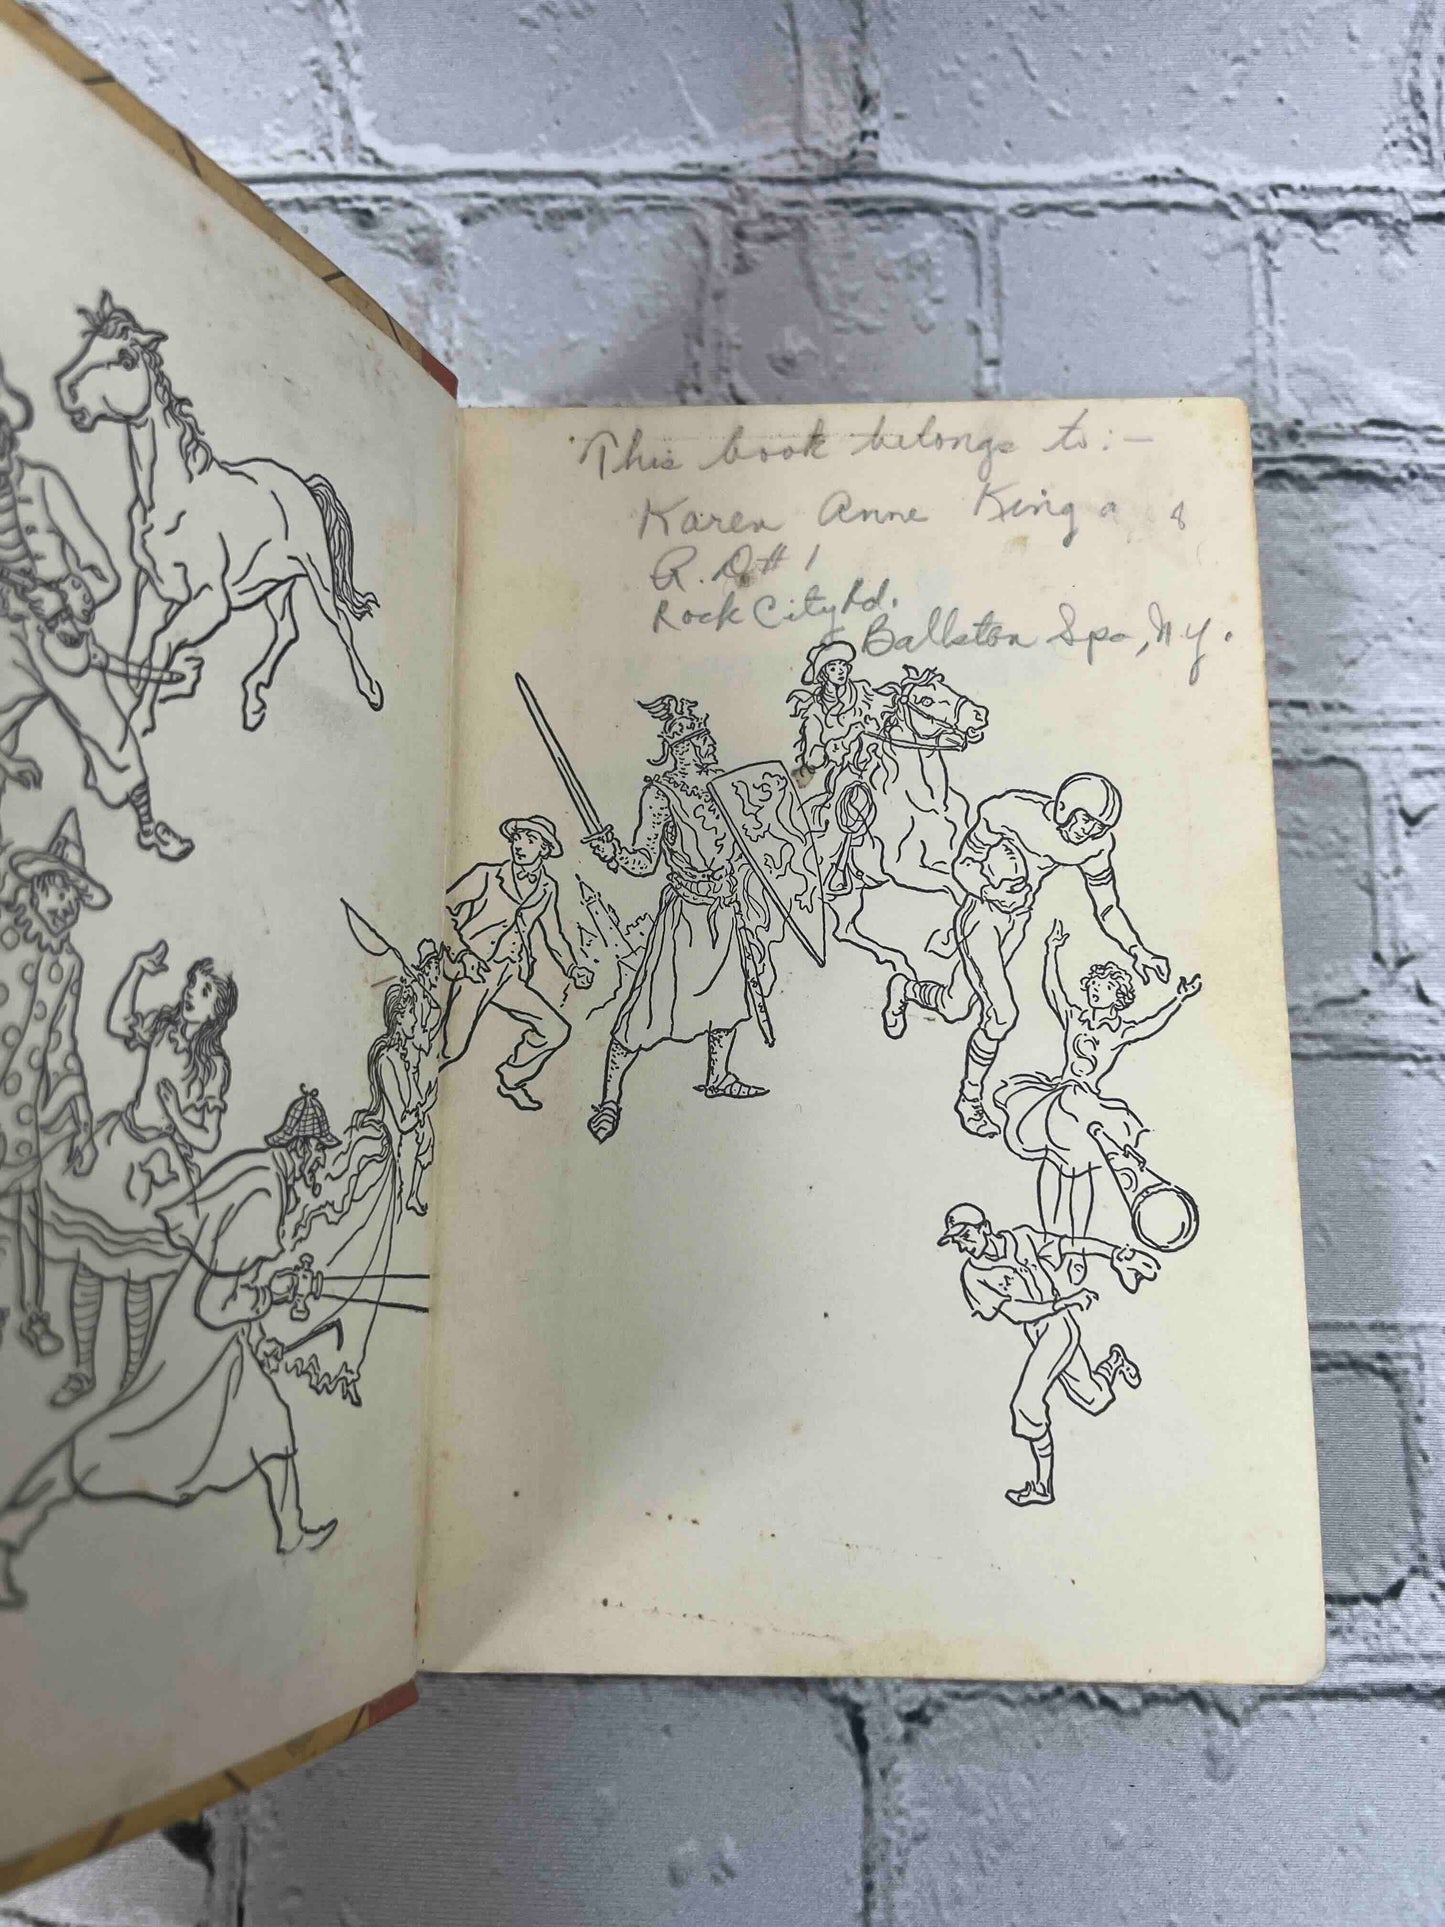 This book belongs to:—
Karen Anne King
R.D#1
Rock City Rd.
Ballston Spa, N.Y.
S